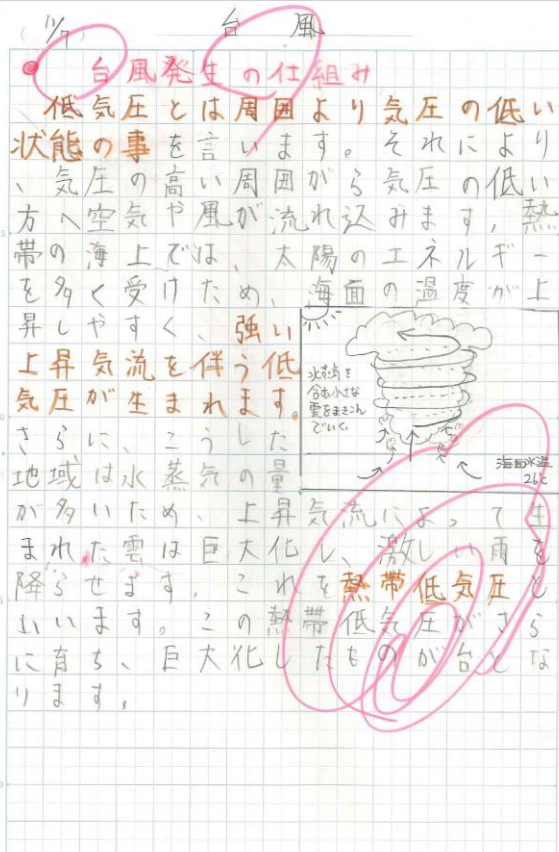 11/7
台風
台風発生の仕組み
低気圧とは周囲より気圧の低い
状態の事を言います。それにより
、気圧の高い周囲がら気圧の低い
方へ空気や風が流れ込みます。熱
帯の海上では、太陽のエネルギー
を多く受けため、海面の温度が上
昇しやすく、強い
上昇気流を伴う低
気圧が生まれます。
さらに、こうした
地域は水蒸気の量
が多いため、上昇気流によって生
まれた雲は巨大化し、激しい雨を
降らせます。これを熱帯低気圧と
いいます。この熱帯低気圧がさら
に育ち、巨大化したものが台とな
ります。
水蒸気を
含む小さな
雲をまきこん
でいく。
海面水温
26℃